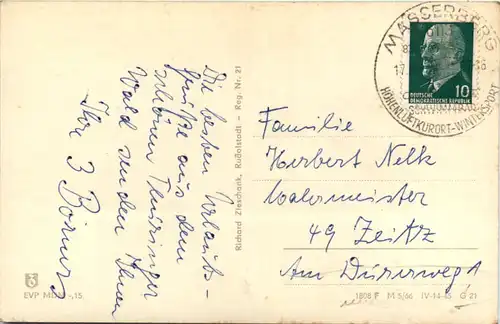 Die besten Urlaubs-
grüße aus dem
schönen Thüringer
Wald senden Ihnen
Ihre 3 Börners
Richard Zieschank, Rudolstadt - Reg. Nr. 21
MASSERBERG
6113
17.
HÖHENLUFTKURORT-WINTERSPORT
10
DEUTSCHE
DEMOKRATISCHE REPUBLIK
Familie
Herbert Nelk
Malermeister
49 Zeitz
Am Dürerweg 1
EVP MDN -,15
1808 F M 5/66 IV-14-45 G 21